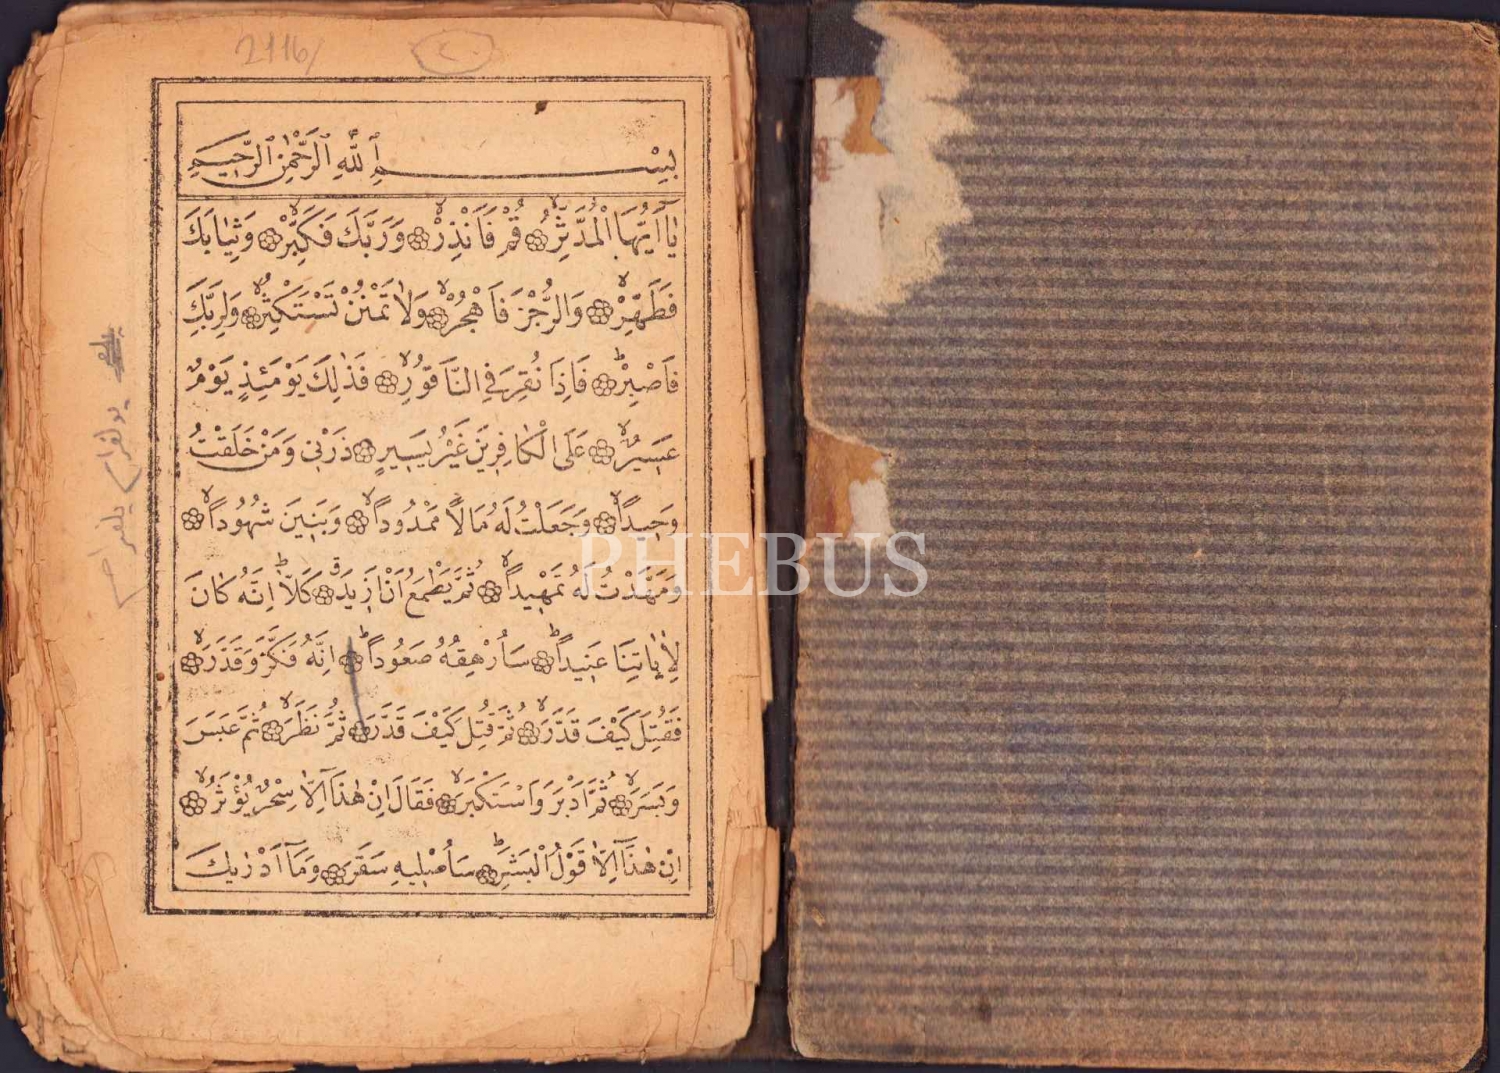 2116/
بِسْمِ ٱللّٰهِ ٱلرَّحْمٰنِ ٱلرَّحِيمِ
يَٓا اَيُّهَا الْمُدَّثِّرُۙ قُمْ فَاَنْذِرْۙ وَرَبَّكَ فَكَبِّرْۙ وَثِيَابَكَ
فَطَهِّرْۙ وَالرُّجْزَ فَاهْجُرْۙ وَلَا تَمْنُنْ تَسْتَكْثِرُۙ وَلِرَبِّكَ
فَاصْبِرْۜ فَاِذَا نُقِرَ فِي النَّاقُورِۙ فَذٰلِكَ يَوْمَئِذٍ يَوْمٌ
عَسِيرٌۙ عَلَى الْكَافِرِينَ غَيْرُ يَسِيرٍ ذَرْنِي وَمَنْ خَلَقْتُ
وَحِيداًۙ وَجَعَلْتُ لَهُ مَالاً مَمْدُوداًۙ وَبَنِينَ شُهُوداًۙ
وَمَهَّدْتُ لَهُ تَمْهِيداًۙ ثُمَّ يَطْمَعُ اَنْ اَزِيدَۗ كَلَّاۜ اِنَّهُ كَانَ
لِاٰيَاتِنَا عَنِيداًۜ سَاُرْهِقُهُ صَعُوداًۜ اِنَّهُ فَكَّرَ وَقَدَّرَۙ
فَقُتِلَ كَيْفَ قَدَّرَۙ ثُمَّ قُتِلَ كَيْفَ قَدَّرَۙ ثُمَّ نَظَرَۙ ثُمَّ عَبَسَ
وَبَسَرَۙ ثُمَّ اَدْبَرَ وَاسْتَكْبَرَۙ فَقَالَ اِنْ هٰذَٓا اِلَّا سِحْرٌ يُؤْثَرُۙ
اِنْ هٰذَٓا اِلَّا قَوْلُ الْبَشَرِۜ سَاُصْلِيهِ سَقَرَ وَمَٓا اَدْرٰيكَ
PHEBUS